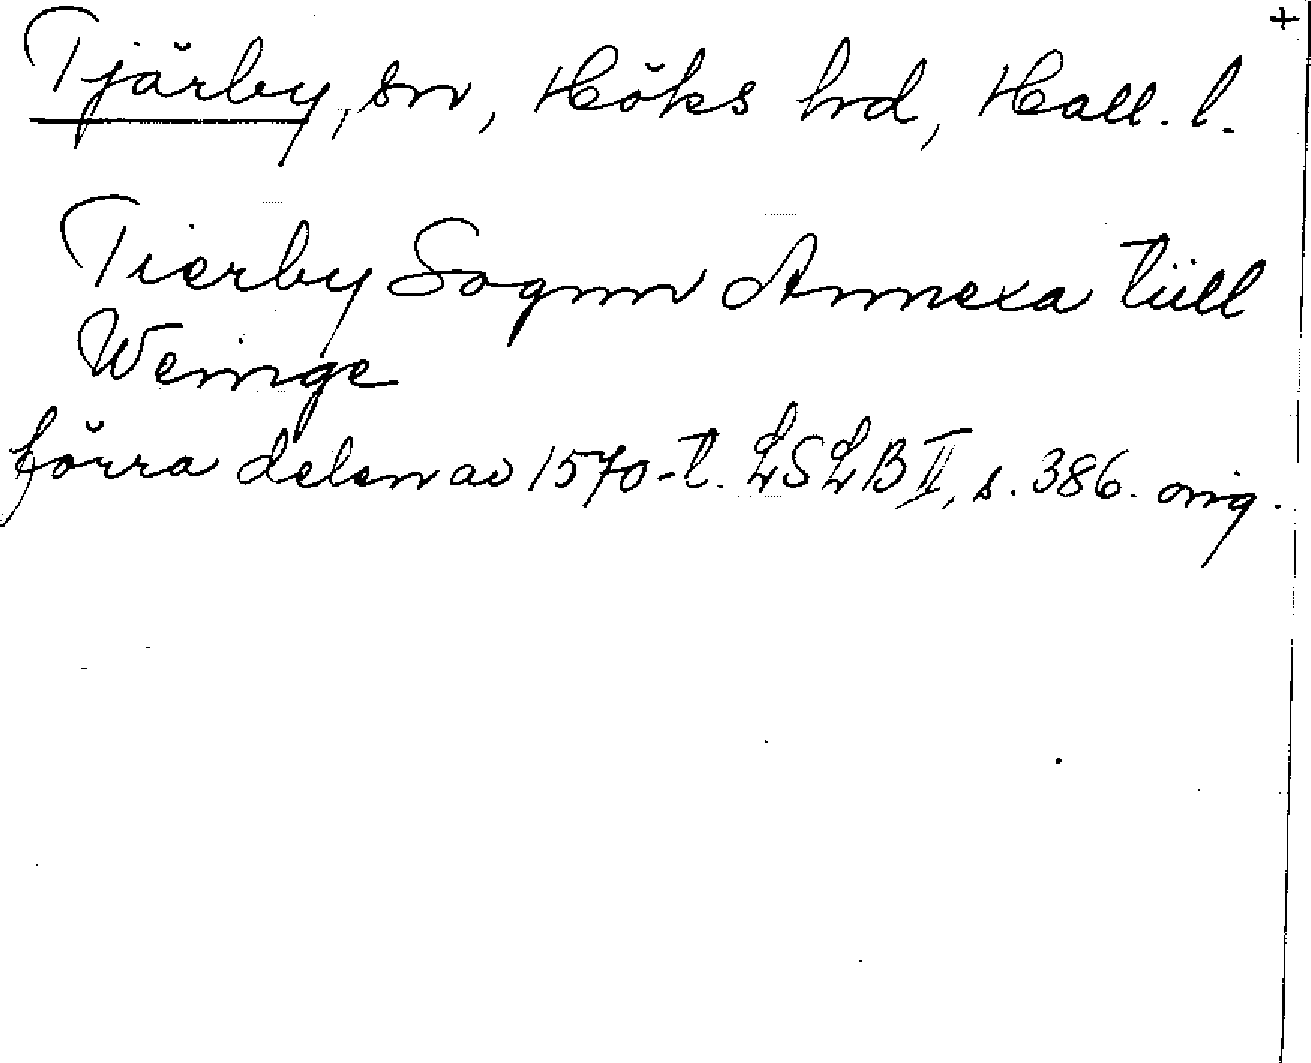 +
Tjärby, sn, Höks hrd, Hall. l.
Tierby Sognn Annexa tiill
Weinge
förra delen av 1570-t. LSLB II, s. 386. orig.